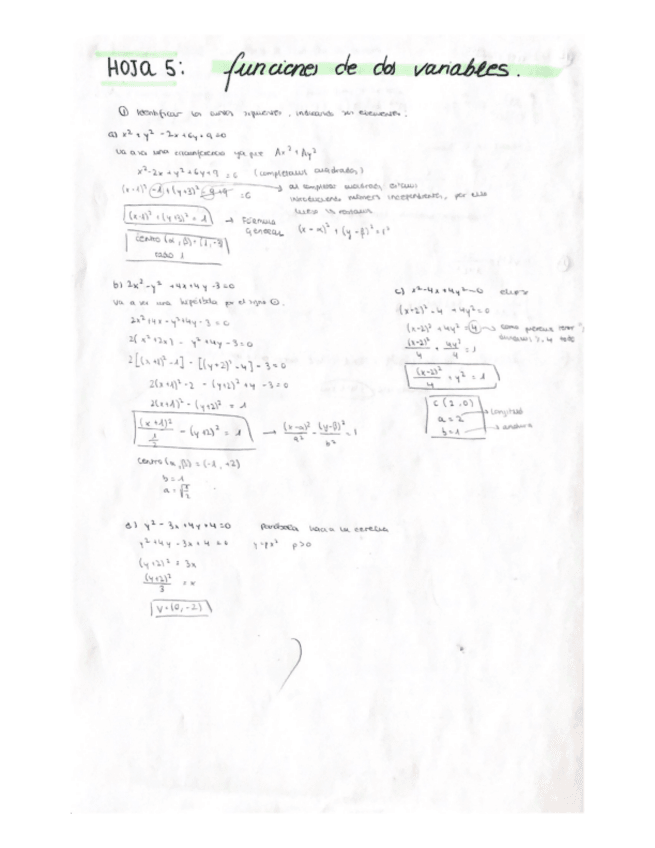 HOJA 5: funciones de dos variables.
① Identificar las curvas siguientes, indicando sus elementos.
a) x² + y² - 2x + 6y + 9 = 0
va a ser una circunferencia ya que Ax² + Ay²
x² - 2x + y² + 6y + 9 = 0 (completamos cuadrados)
(x-1)² - 1 + (y+3)² - 9 + 9 = 0
al completar cuadrados,
introduciendo números independientes, por ello
(x-1)² + (y+3)² = 1 → Fórmula general (x-α)² + (y-β)² = r²
centro (α, β) = (1, -3)
radio 1
b) 2x² - y² + 4x + 4y - 3 = 0
va a ser una hipérbola por el signo ⊖.
2x² + 4x - y² + 4y - 3 = 0
2(x² + 2x) - y² + 4y - 3 = 0
2[(x+1)² - 1] - [(y+2)² - 4] - 3 = 0
2(x+1)² - 2 - (y+2)² + 4 - 3 = 0
2(x+1)² - (y+2)² = 1
(x+1)²/½ - (y+2)² = 1 → (x-α)²/a² - (y-β)²/b² = 1
centro (α, β) = (-1, +2)
b = 1
a = √½
c) x² - 4x + 4y² = 0 elipse
(x-2)² - 4 + 4y² = 0
(x-2)² + 4y² = 4 → como
(x-2)²/4 + 4y²/4 = 1
(x-2)²/4 + y² = 1
c (2, 0)
a = 2 → longitud
b = 1 → anchura
e) y² - 3x + 4y + 4 = 0 parábola hacia la derecha
y² + 4y - 3x + 4 = 0 y = px² p > 0
(y+2)² = 3x
(y+2)²/3 = x
V = (0, -2)